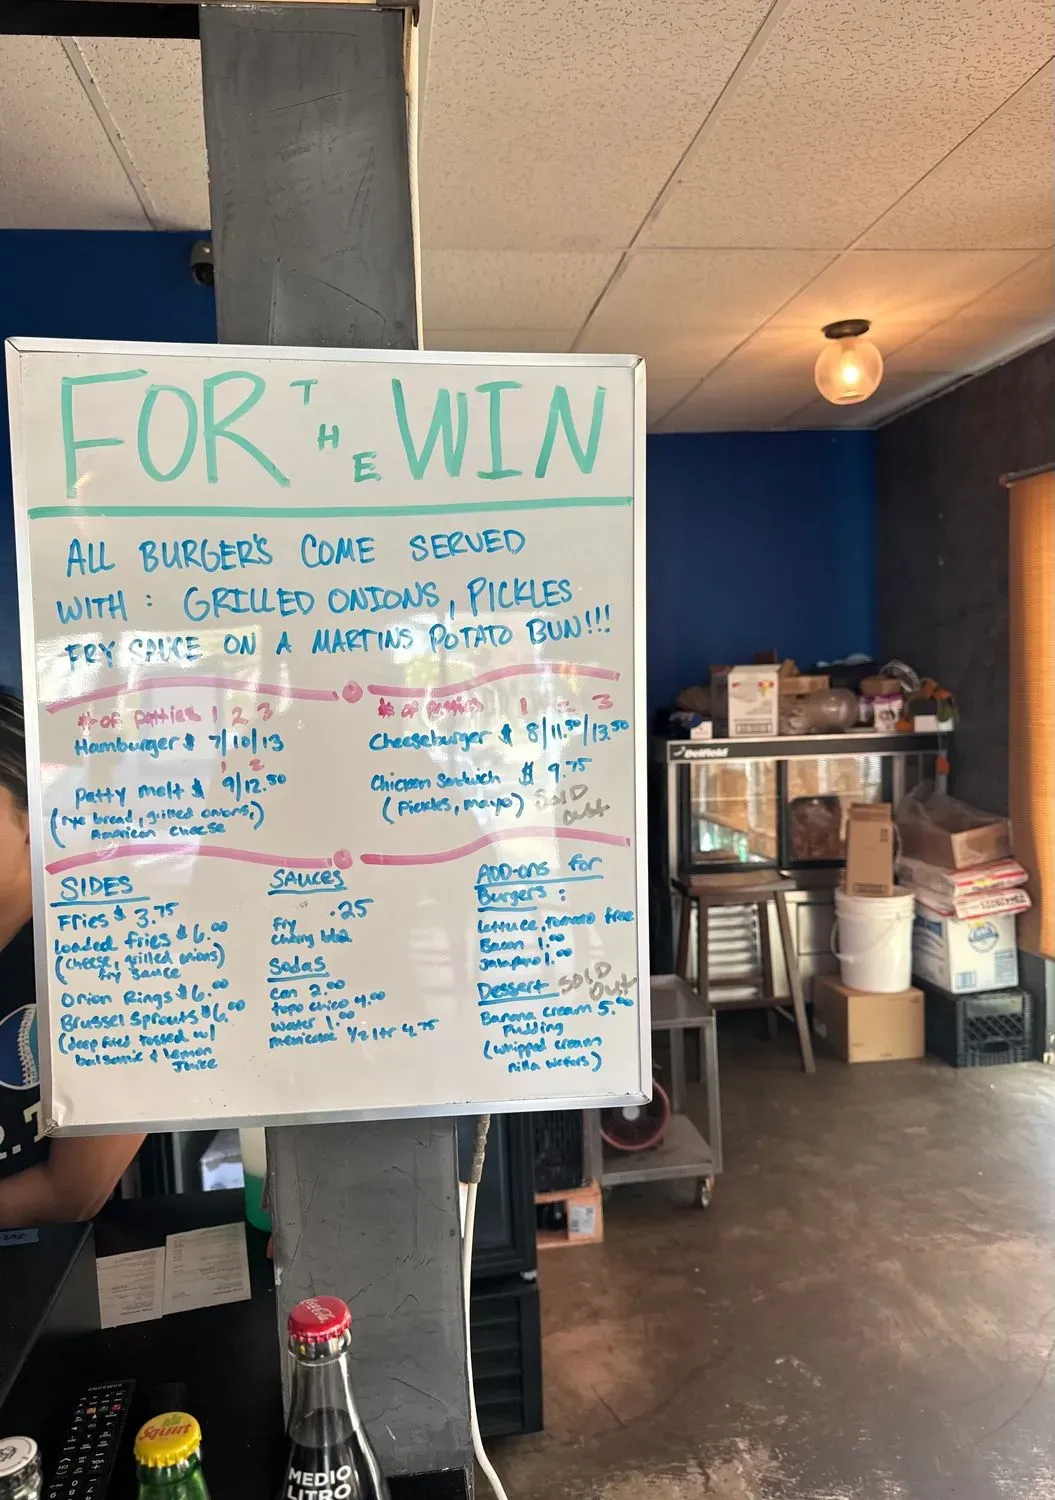 FOR THE WIN
ALL BURGER'S COME SERVED
WITH: GRILLED ONIONS, PICKLES
FRY SAUCE ON A MARTINS POTATO BUN!!!
# of patties 1 2 3
Hamburger $ 7/10/13
1 2
Patty melt $ 9/12.50
(rye bread, grilled onions,)
American cheese
# of patties 1 2 3
Cheeseburger $ 8/11.50/13.50
Chicken Sandwich $ 9.75
(Pickles, mayo) SOLD
OUT
SIDES
Fries $ 3.75
Loaded fries $ 6.00
(cheese, grilled onions)
fry sauce
Onion Rings $ 6.00
Brussel Sprouts $ 6.00
(deep fried tossed w/
balsamic & lemon
juice
SAUCES
.25
Fry
Sodas
Can 2.00
topo chico 4.00
Water 1.00
mexicoke 1/2 ltr 4.75
ADD-ons for
Burgers:
Lettuce, tomato free
Bacon 1.00
Jalapeno 1.00
Dessert SOLD
OUT
Banana cream 5.00
Pudding
(whipped cream
nilla wafers)
Delfield
Coca-Cola
Squirt
MEDIO
LITRO
SAMSUNG